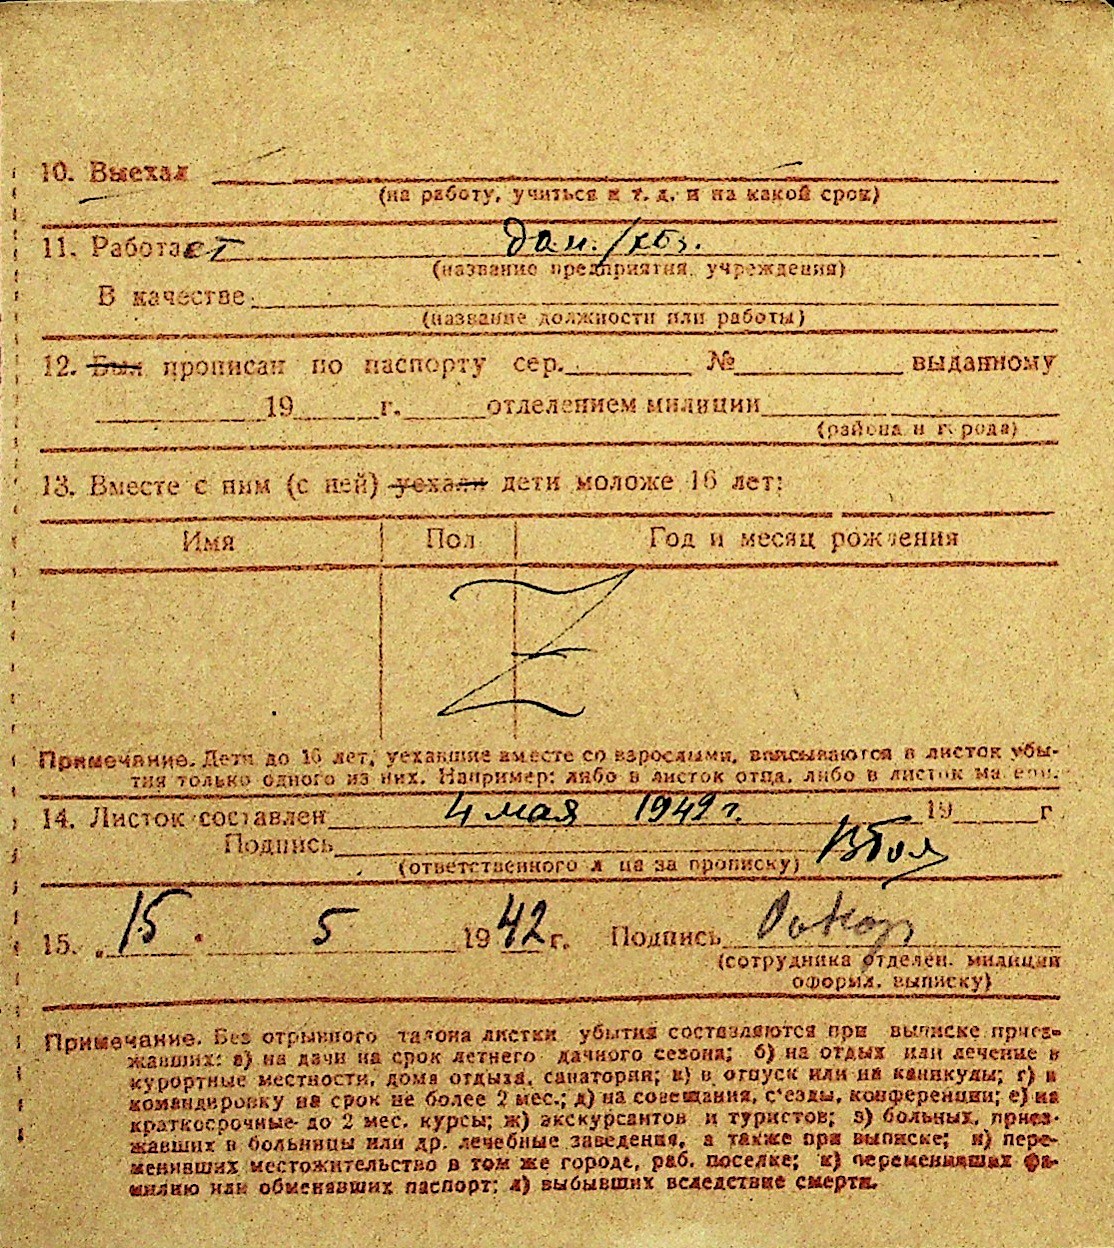 10. Выехал
(на работу, учиться и т. д. и на какой срок)
11. Работает дом./хоз.
(название предприятия, учреждения)
В качестве
(название должности или работы)
12. Был прописан по паспорту сер. № выданному
19 г. отделением милиции
(района и города)
13. Вместе с ним (с ней) уехали дети моложе 16 лет:
Имя Пол Год и месяц рождения
Z
Примечание. Дети до 16 лет, уехавшие вместе со взрослыми, вписываются в листок убы-
тия только одного из них. Например: либо в листок отца, либо в листок матери.
14. Листок составлен 4 мая 1942 г. 19 г
Подпись
(ответственного лица за прописку)
15. „15" 5 1942 г. Подпись
(сотрудника отделен. милиции
оформл. выписку)
Примечание. Без отрывного талона листки убытия составляются при выписке приез-
жавших: а) на дачи на срок летнего дачного сезона; б) на отдых или лечение в
курортные местности, дома отдыха, санатории; в) в отпуск или на каникулы; г) в
командировку на срок не более 2 мес.; д) на совещания, с'езды, конференции; е) на
краткосрочные- до 2 мес. курсы; ж) экскурсантов и туристов; з) больных, приез-
жавших в больницы или др. лечебные заведения, а также при выписке; и) пере-
менивших местожительство в том же городе, раб. поселке; к) переменивших фа-
милию или обменявших паспорт; л) выбывших вследствие смерти.